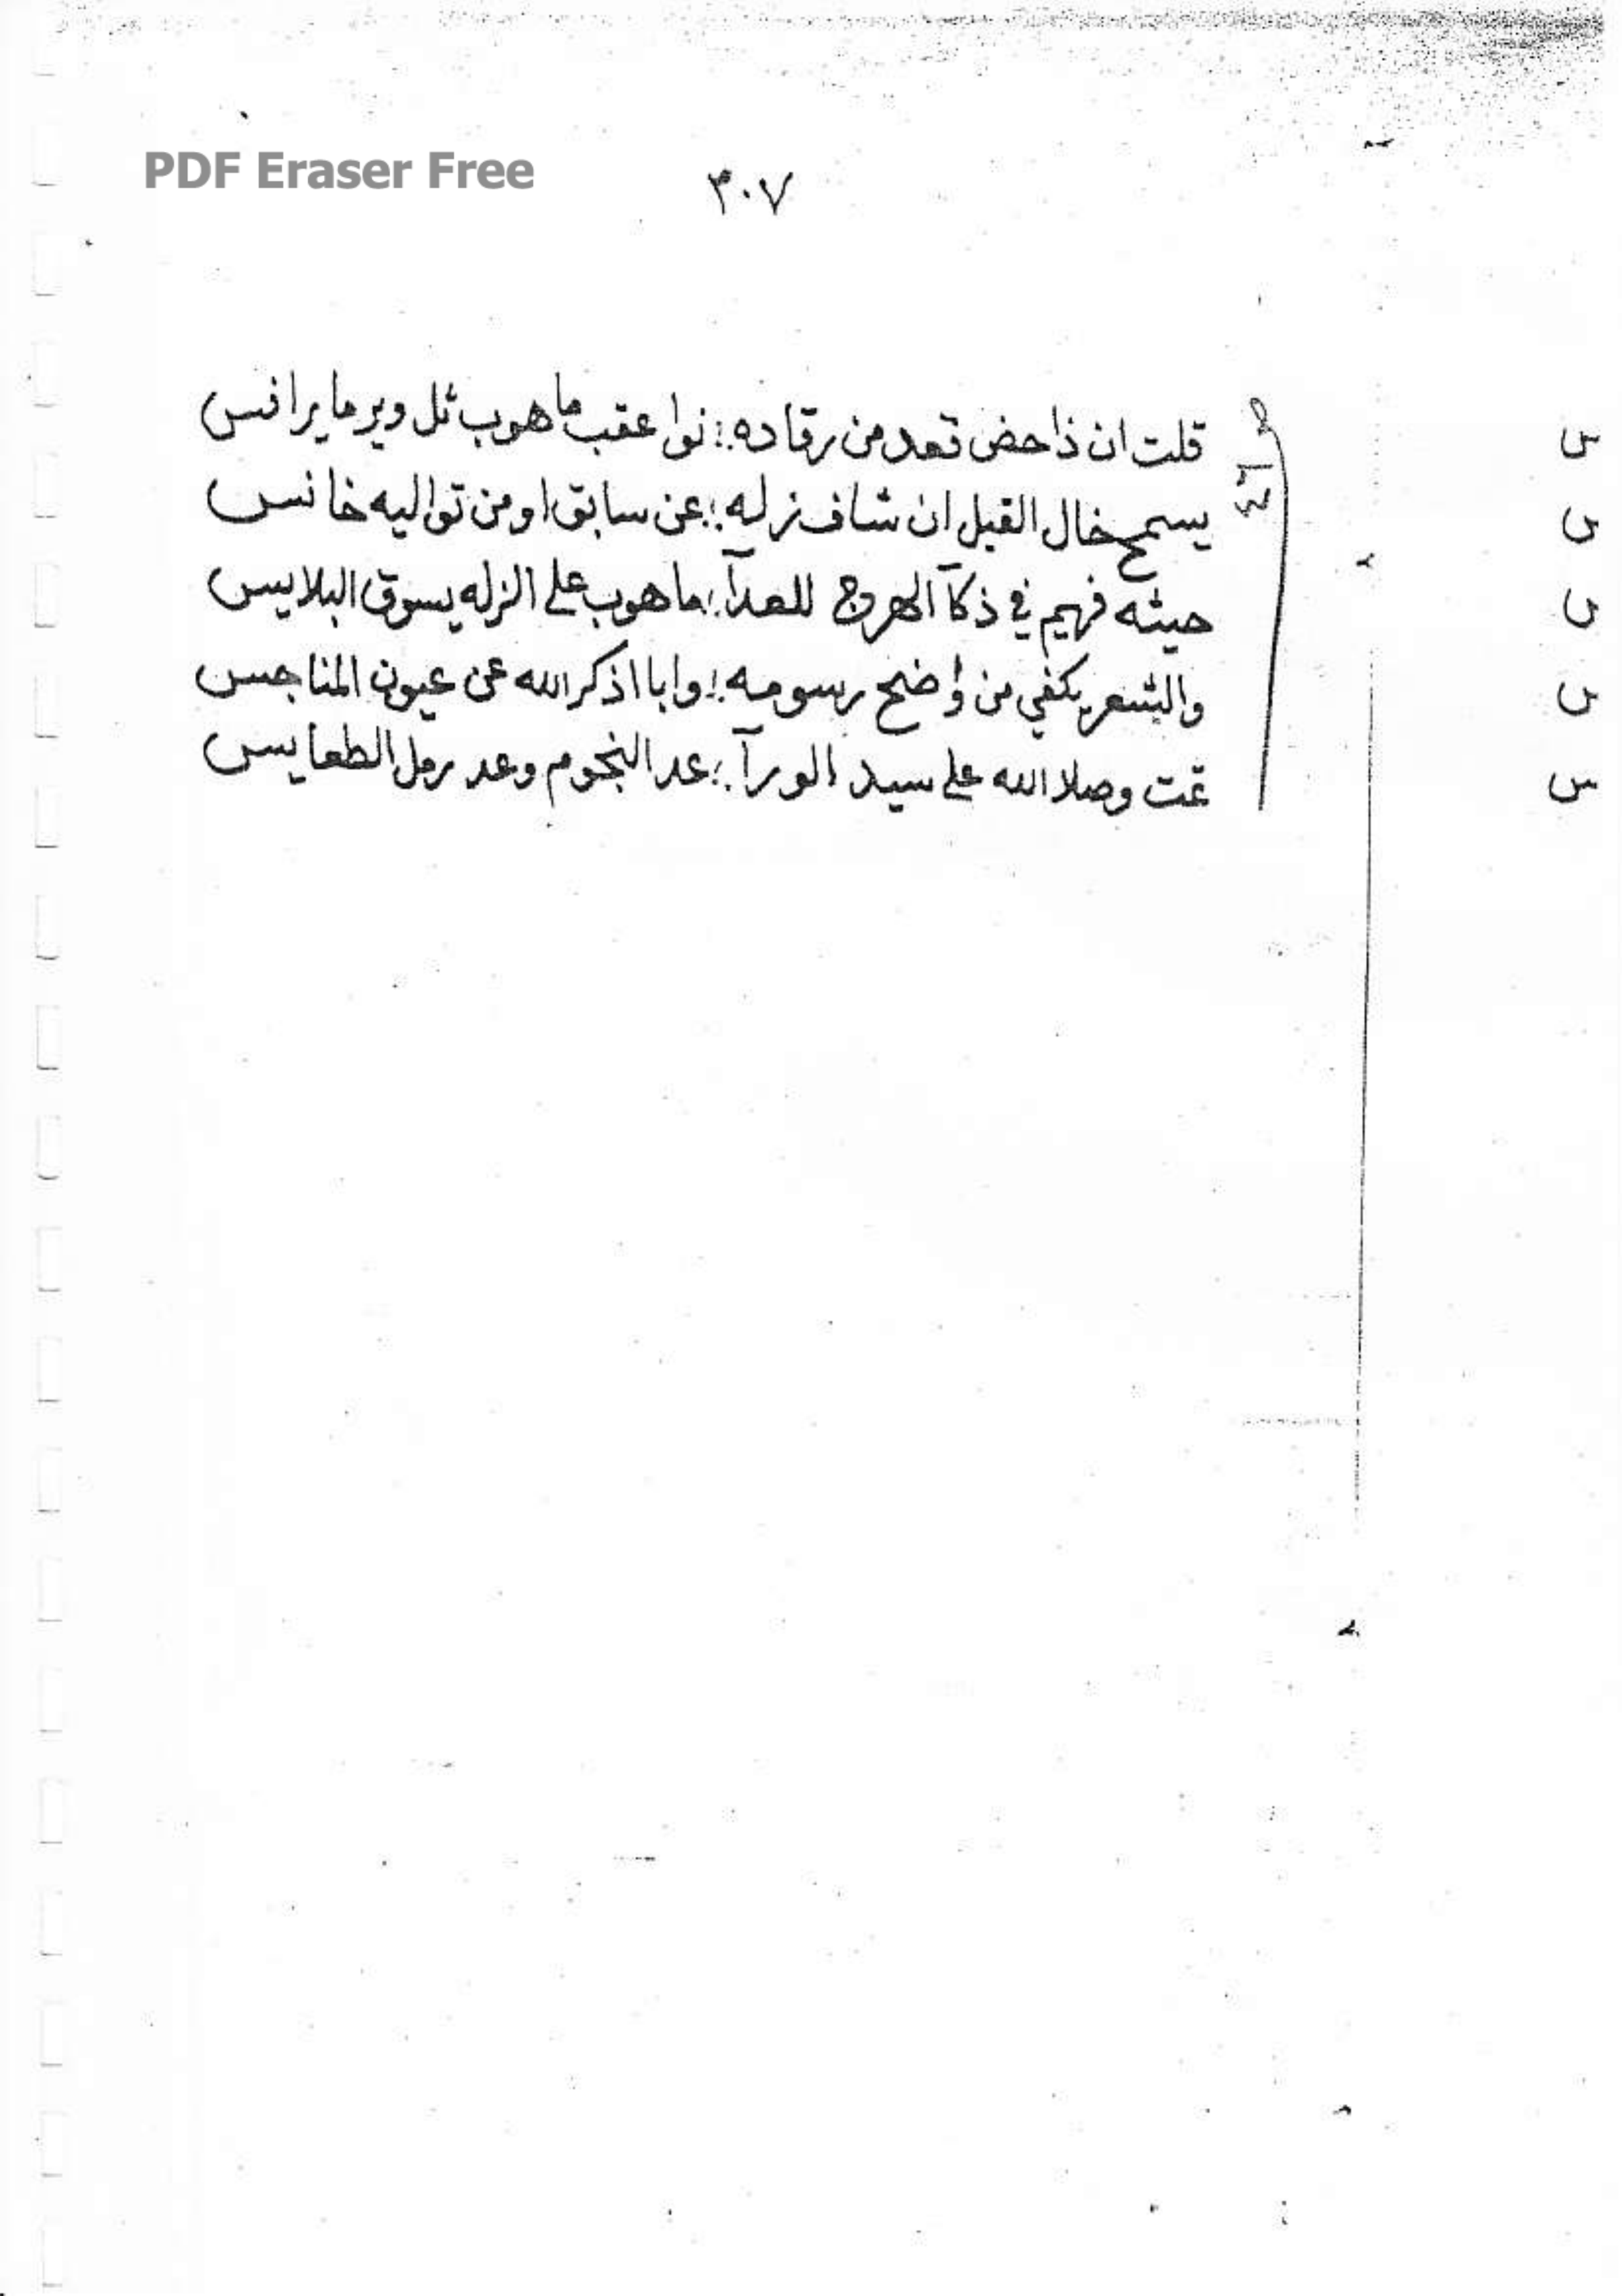 PDF Eraser Free
٣٠٧
قلت ان ذا حض قعد من رقاده :: نوا عقب ما هوب ثل وير ما يرانس
يسمح خال القيل ان شاف زله :: عن سابق او من توا اليه خانس
حيثه فهيم في ذكآ الهروج للعدآ :: ما هوب على الزله يسوق البلايس
والشعر يكفي من واضح رسومه :: وابا اذكر الله عن عيون المناجس
تمت وصلا الله على سيد الورآ :: عد النجوم وعد رمل الطعايس
س
س
س
س
س